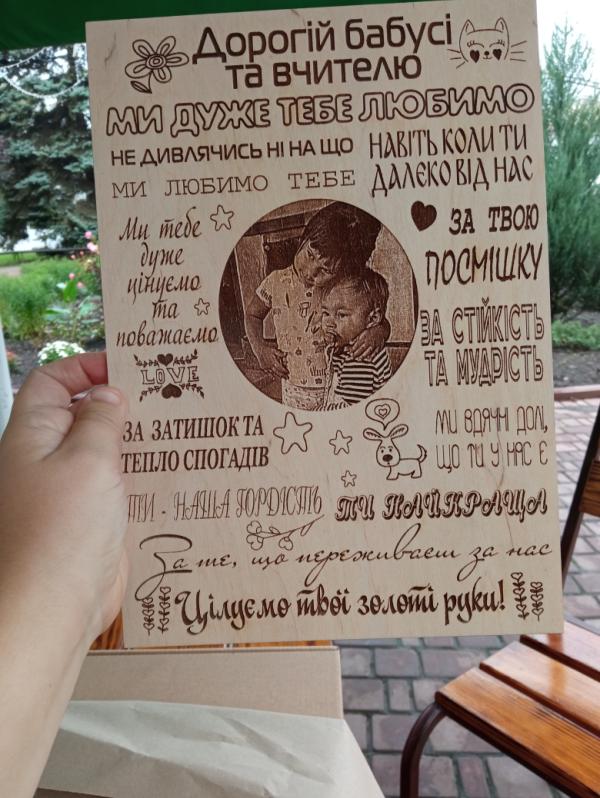 Дорогій бабусі
та вчителю
МИ ДУЖЕ ТЕБЕ ЛЮБИМО
НЕ ДИВЛЯЧИСЬ НІ НА ЩО
НАВІТЬ КОЛИ ТИ
ДАЛЕКО ВІД НАС
МИ ЛЮБИМО ТЕБЕ
Ми тебе
дуже
цінуємо
та
поважаємо
ЗА ТВОЮ
ПОСМІШКУ
ЗА СТІЙКІСТЬ
ТА МУДРІСТЬ
LOVE
ЗА ЗАТИШОК ТА
ТЕПЛО СПОГАДІВ
МИ ВДЯЧНІ ДОЛІ,
ЩО ТИ У НАС Є
ТИ - НАША ГОРДІСТЬ
ТИ НАЙКРАЩА
За те, що переживаєш за нас
Цілуємо твої золоті руки!